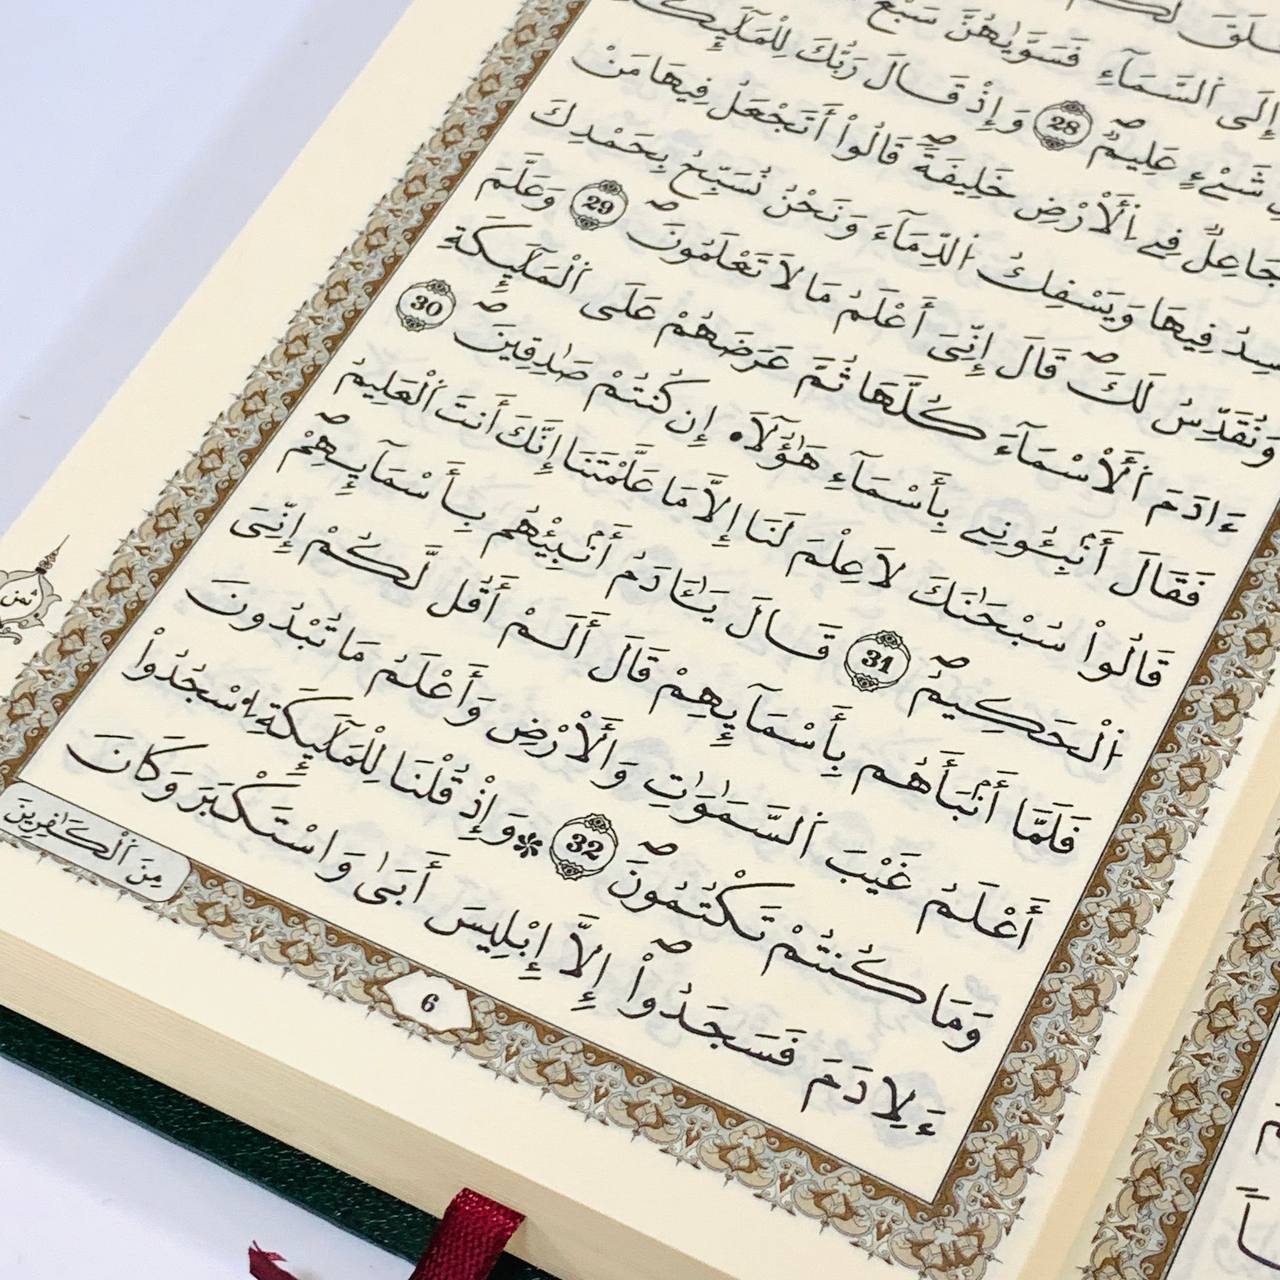 خَلَقَ لَكُم
إِلَى اَ۬لسَّمَآءِ فَسَوّ۪يٰهُنَّ سَبْعَ
شَےْءٍ عَلِيمٞۖ 28 وَإِذْ قَالَ رَبُّكَ لِلْمَلَٰٓئِكَةِ
جَاعِلٞ فِے اِ۬لَارْضِ خَلِيفَةٗۖ قَالُوٓاْ أَتَجْعَلُ فِيهَا مَنْ
يُّفْسِدُ فِيهَا وَيَسْفِكُ اُ۬لدِّمَآءَ وَنَحْنُ نُسَبِّحُ بِحَمْدِكَ
وَنُقَدِّسُ لَكَۖ قَالَ إِنِّيَ أَعْلَمُ مَا لَا تَعْلَمُونَۖ 29 وَعَلَّمَ
ءَادَمَ اَ۬لَاسْمَآءَ كُلَّهَا ثُمَّ عَرَضَهُمْ عَلَى اَ۬لْمَلَٰٓئِكَةِ
فَقَالَ أَنۢبِـُٔونِے بِأَسْمَآءِ هَٰٓؤُلَآءِ اِن كُنتُمْ صَٰدِقِينَۖ 30
قَالُواْ سُبْحَٰنَكَ لَا عِلْمَ لَنَآ إِلَّا مَا عَلَّمْتَنَآ إِنَّكَ أَنتَ اَ۬لْعَلِيمُ
اُ۬لْحَكِيمُۖ 31 قَالَ يَٰٓـَٔادَمُ أَنۢبِئْهُم بِأَسْمَآئِهِمْۖ
فَلَمَّآ أَنۢبَأَهُم بِأَسْمَآئِهِمْ قَالَ أَلَمَ اَقُل لَّكُمُۥٓ إِنِّيَ
أَعْلَمُ غَيْبَ اَ۬لسَّمَٰوَٰتِ وَالَارْضِ وَأَعْلَمُ مَا تُبْدُونَ
وَمَا كُنتُمْ تَكْتُمُونَۖ 32 ۞ وَإِذْ قُلْنَا لِلْمَلَٰٓئِكَةِ اِ۟سْجُدُواْ
لِأٓدَمَ فَسَجَدُوٓاْ إِلَّآ إِبْلِيسَ أَب۪يٰ وَاسْتَكْبَرَ وَكَانَ
مِنَ اَ۬لْكٰ۪فِرِينَ
6
ثمن